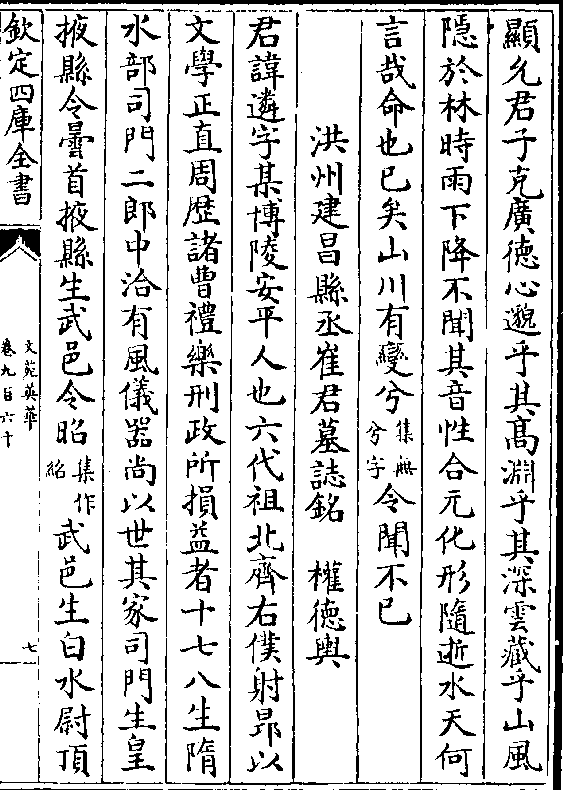 顯允君子克廣德心邈乎其髙淵乎其深雲藏乎山風
隱於林時雨下降不聞其音性合元化形隨逝水天何
言哉命也已矣山川有變兮集無兮字令聞不已
洪州建昌縣丞崔君墓誌銘　權德輿
君諱遴字某博陵安平人也六代祖北齊右僕射昂以
文學正直周歴諸曹禮樂刑政所損益者十七八生隋
水部司門二郎中洽有風儀器尚以世其家司門生皇
掖縣令曇首掖縣生武邑令昭集作紹武邑生白水尉頂
欽定四庫全書
文苑英華
卷九百六十
七